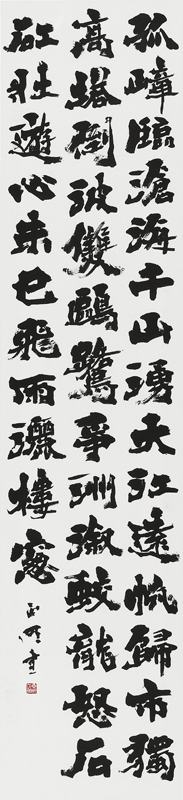 孤嶂臨滄海千山湧大江遠帆歸市獨
高塔倒波雙鷗鷺爭洲漵蛟龍怒石
矼壯遊心未已飛雨灑樓窻